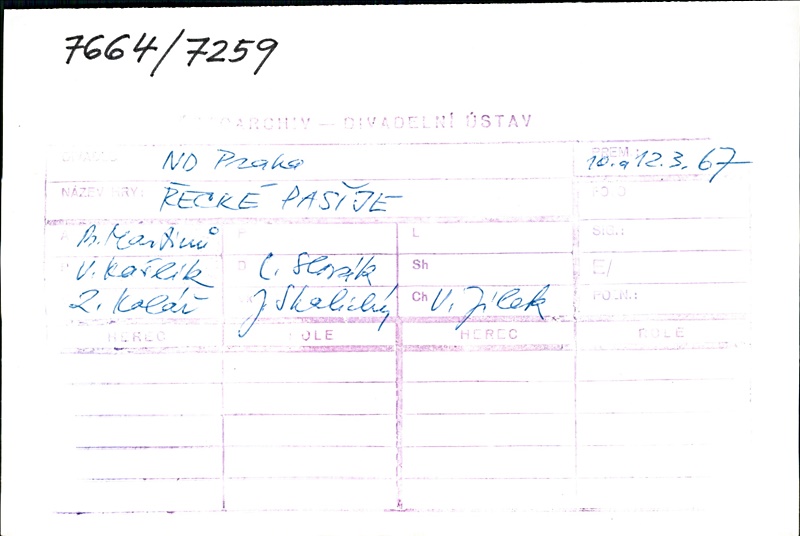 7664/7259
ARCHIV — DIVADELNÍ ÚSTAV
ND Praha
PREM.: 10. a 12.3. 67
NÁZEV HRY: ŘECKÉ PAŠIJE
FOTO
B. Martinů L SIG.:
V. Kašlík Sh E/
Z. Kolář J. Skalický Ch V. Jílek POZN.:
HEREC ROLE HEREC ROLE